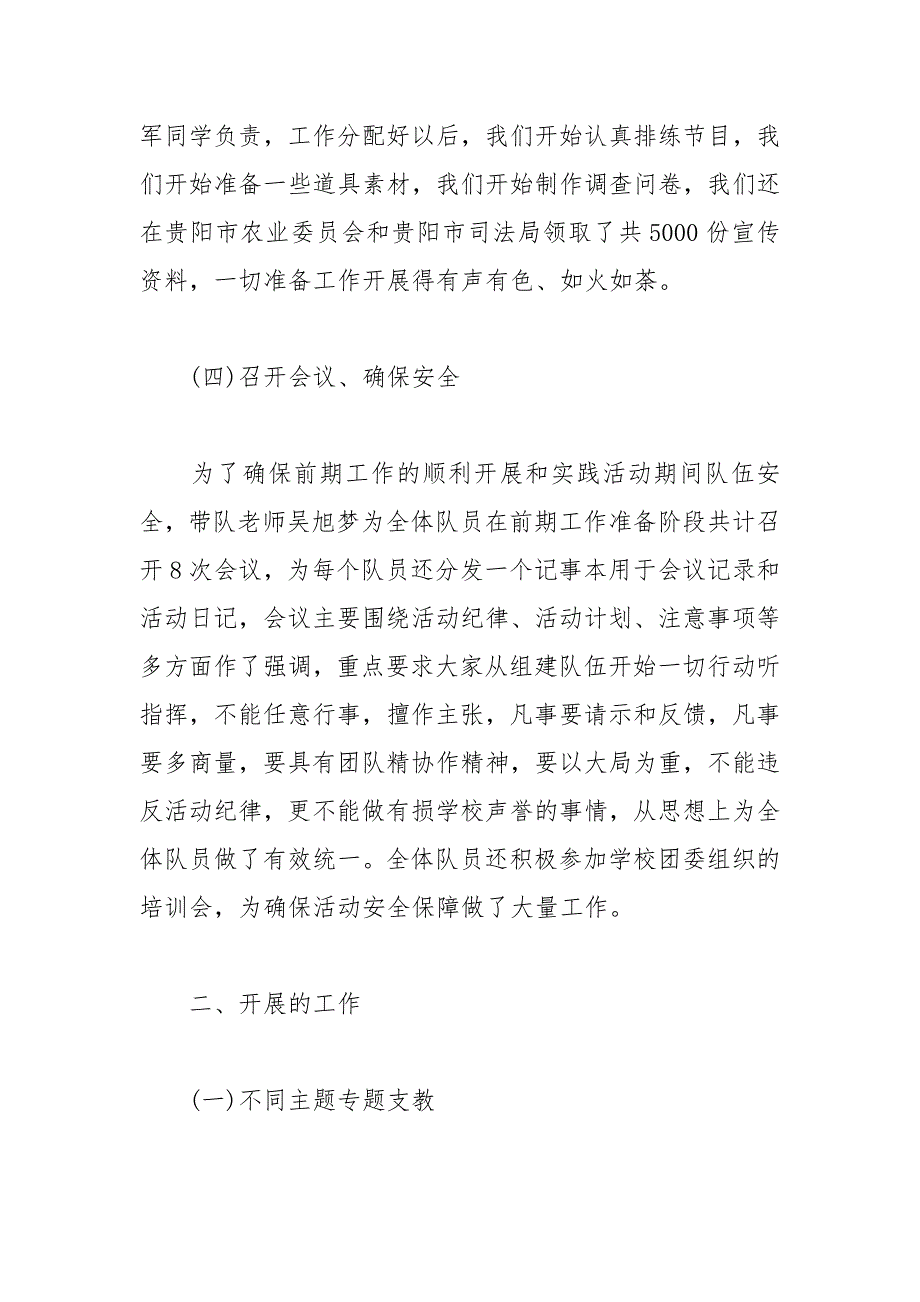 军同学负责，工作分配好以后，我们开始认真排练节目，我
们开始准备一些道具素材，我们开始制作调查问卷，我们还
在贵阳市农业委员会和贵阳市司法局领取了共 5000 份宣传
资料，一切准备工作开展得有声有色、如火如荼。
(四)召开会议、确保安全
为了确保前期工作的顺利开展和实践活动期间队伍安
全，带队老师吴旭梦为全体队员在前期工作准备阶段共计召
开 8 次会议，为每个队员还分发一个记事本用于会议记录和
活动日记，会议主要围绕活动纪律、活动计划、注意事项等
多方面作了强调，重点要求大家从组建队伍开始一切行动听
指挥，不能任意行事，擅作主张，凡事要请示和反馈，凡事
要多商量，要具有团队精协作精神，要以大局为重，不能违
反活动纪律，更不能做有损学校声誉的事情，从思想上为全
体队员做了有效统一。全体队员还积极参加学校团委组织的
培训会，为确保活动安全保障做了大量工作。
二、开展的工作
(一)不同主题专题支教